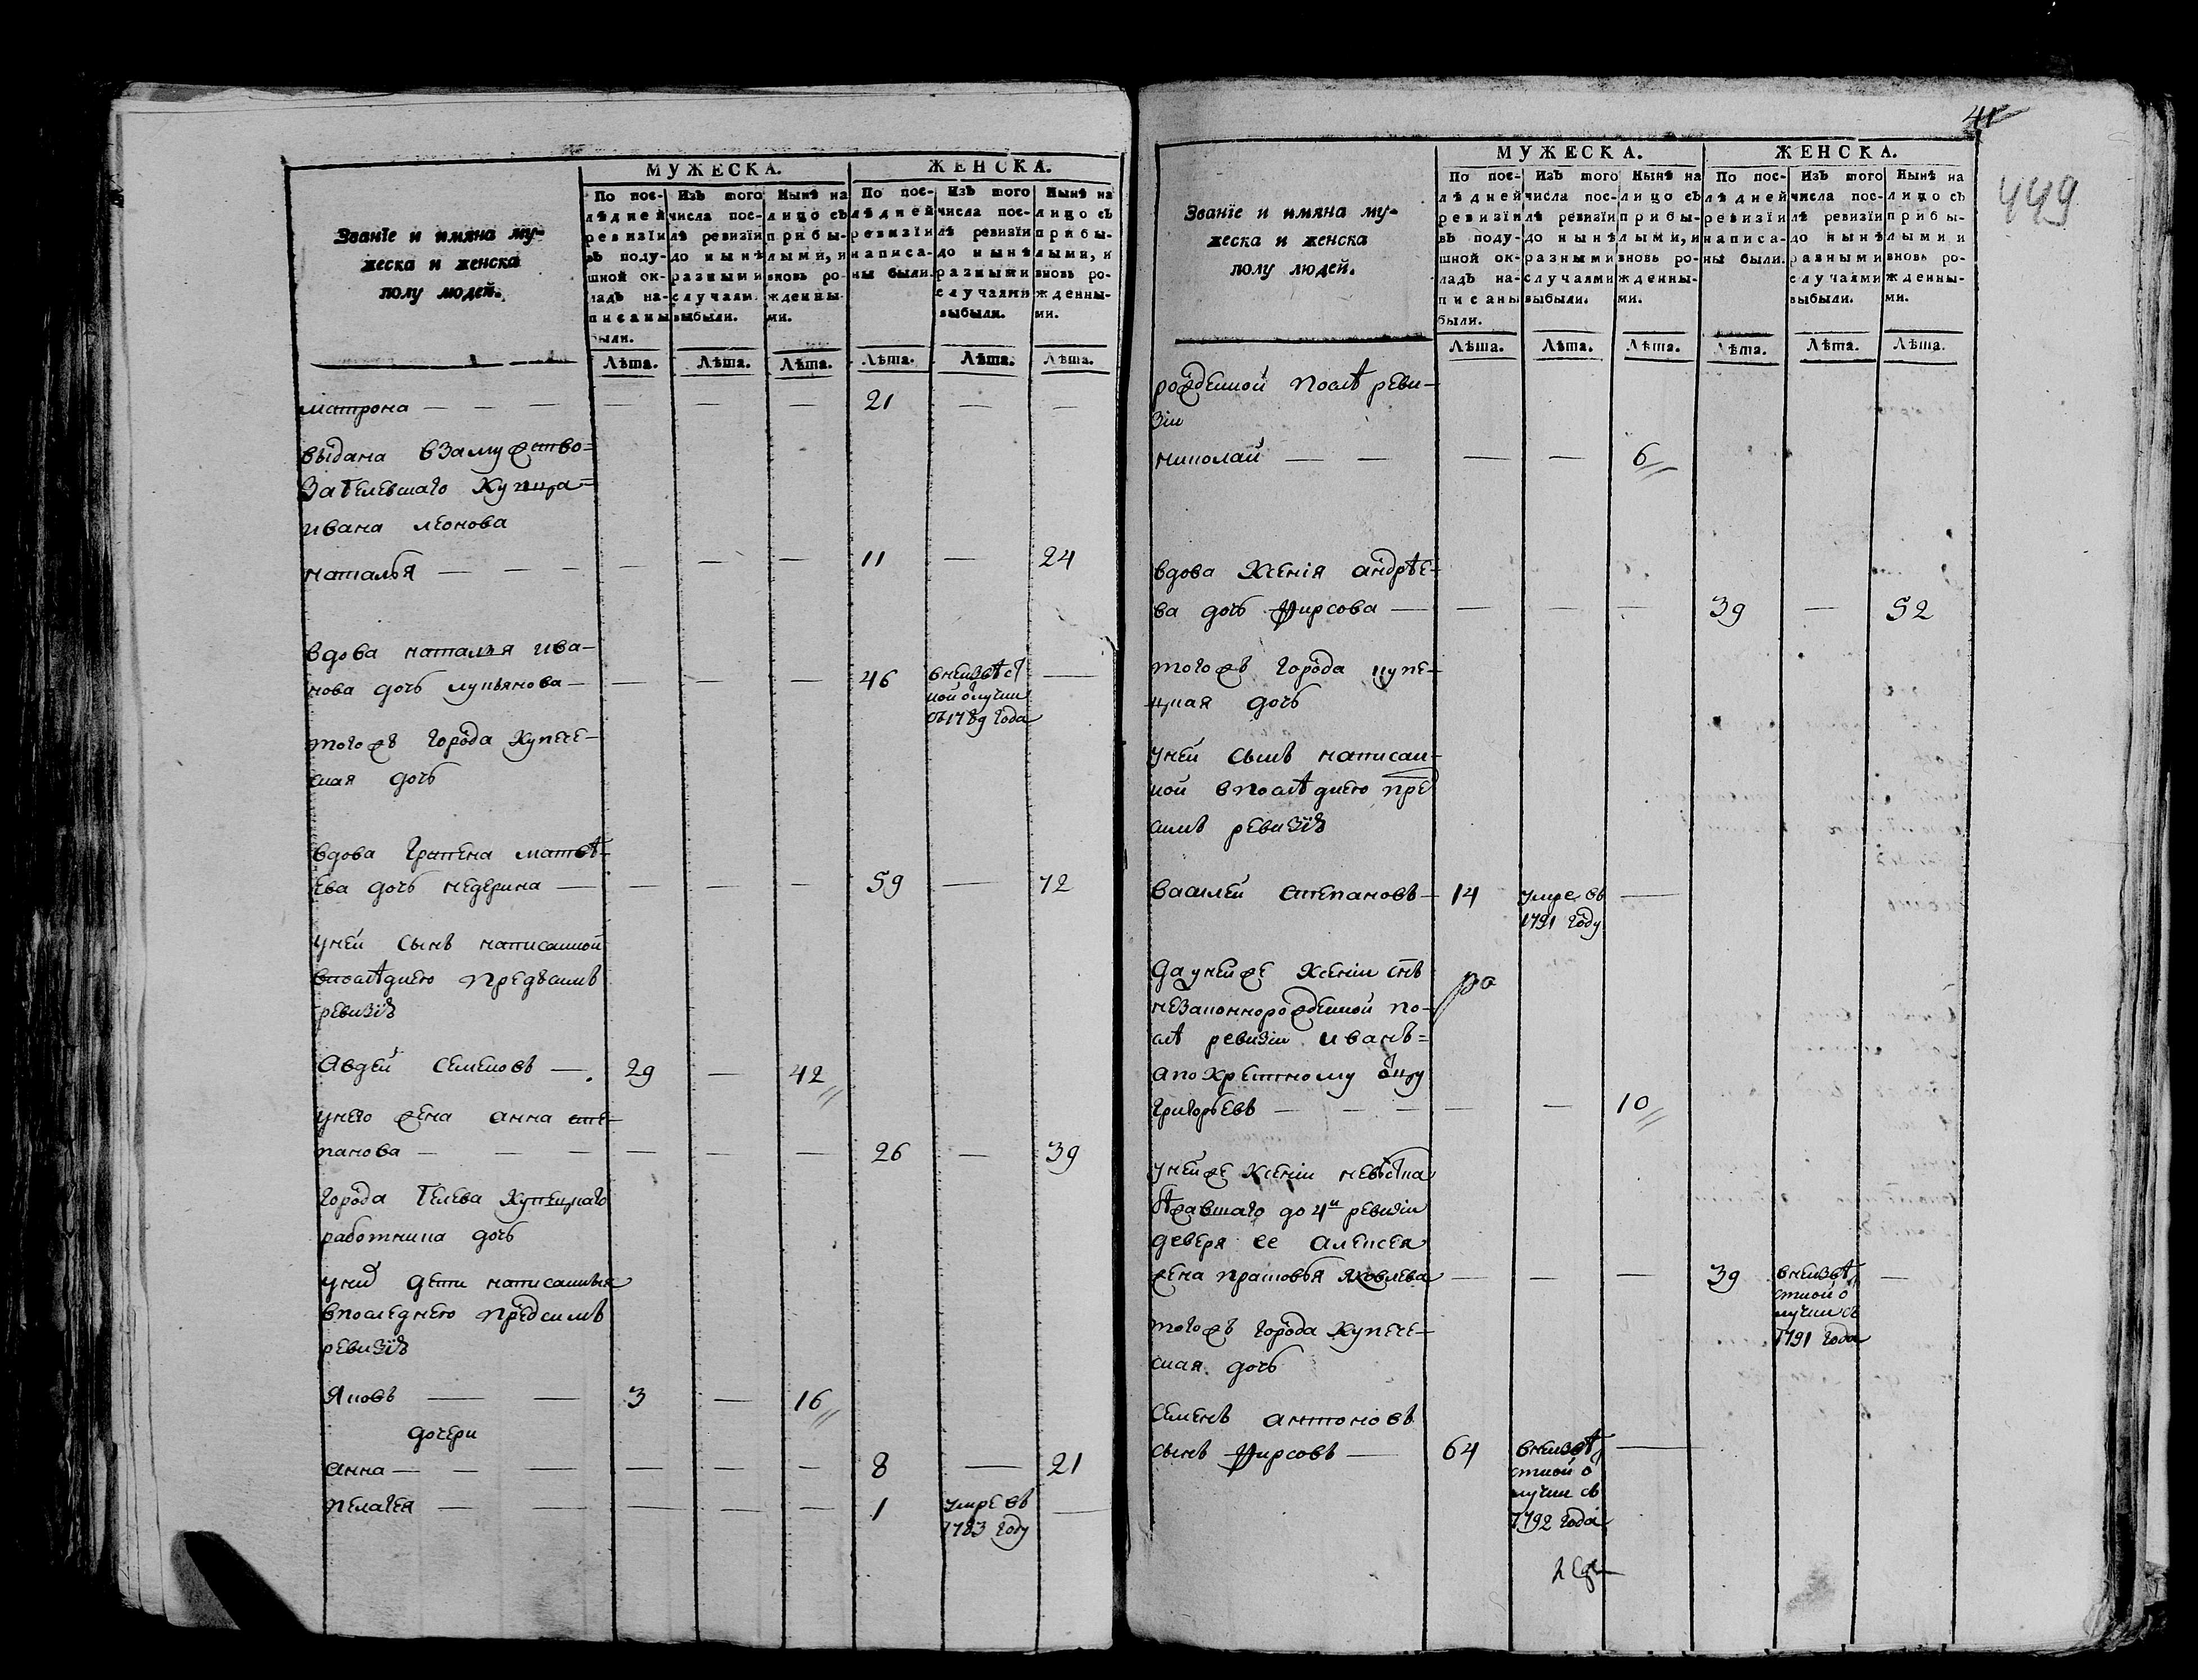 МУЖЕСКА.
ЖЕНСКА.
Званїе и имяна му-
жеска и женска
полу людей.
По пос-
лѣдней
ревизїи
въ поду-
шной ок-
ладъ на-
писаны
были.
Изъ того
числа пос-
лѣ ревизїи
до нынѣ
разными
случаям.
выбыли.
Нынѣ на
лицо съ
прибы-
лыми, и
вновь ро-
жденны-
ми.
По пос-
лѣдней
ревизїи
написа-
ны были.
Изъ того
числа пос-
лѣ ревизїи
до нынѣ
разными
случаями
выбыли.
Нынѣ на
лицо съ
прибы-
лыми, и
вновь ро-
жденны-
ми.
Лѣта. Лѣта. Лѣта. Лѣта. Лѣта. Лѣта.
матрона — — — — — — 21 — —
выдана взамужство=
забелевшаго купца=
ивана леонова
наталья — — — — — — 11 — 24
вдова наталья ива-
нова дочь лукьянова — — — — 46 внеизвѣст
ной ѿлучки
съ 1789 года —
тогожъ города купече-
ская дочь
вдова грапена матвѣ-
ева дочь недерина — — — — 59 — 72
уней сынъ написанной
впослѣднею предъсимъ
ревизїю
Авдей семеновъ — 29 — 42
унего жена анна сте-
панова — — — — — — 26 — 39
города белева купецкаго
работника дочь
унид дети написанныя
впоследнею предсимъ
ревизїю
Яковъ — — 3 — 16
дочери
анна — — — — — — 8 — 21
пелагея — — — — — 1 умре въ
1783 году —
41
449
МУЖЕСКА.
ЖЕНСКА.
Званїе и имяна му-
жеска и женска
полу людей.
По пос-
лѣдней
ревизїи
въ поду-
шной ок-
ладъ на-
писаны
были.
Изъ того
числа пос-
лѣ ревизїи
до нынѣ
разными
случаями
выбыли.
Нынѣ на
лицо съ
прибы-
лыми, и
вновь ро-
жденны-
ми.
По пос-
лѣдней
ревизїи
написа-
ны были.
Изъ того
числа пос-
лѣ ревизїи
до нынѣ
разными
случаями
выбыли.
Нынѣ на
лицо съ
прибы-
лыми и
вновь ро-
жденны-
ми.
Лѣта. Лѣта. Лѣта. Лѣта. Лѣта. Лѣта.
рожденной послѣ реви-
зіи
николай — — — — 6
вдова ксенія андрѣе-
ва дочь фирсова — — — — 39 — 52
тогожъ города купе-
цкая дочь
уней сынъ написан-
ной впослѣднею пред
симъ ревизїю
василей степановъ — 14 умре въ
1791 году —
да унейже ксеніи снъ
незаконнорожденной по-
слѣ ревизіи иванъ=
апо крестному ѿцу
григорьевъ — — — — — 10
унейже ксеніи невѣстка
бѣжавшаго до 4й ревизіи
деверя ее алексея
жена прасковья яковлева — — — 39 внеизвѣ
стной ѿ
лучки съ
1791 года —
тогожъ города купече-
ская дочь
семенъ антоновъ
сынъ фирсовъ — 64 внеизвѣ
стной ѿ
лучки съ
1792 года —